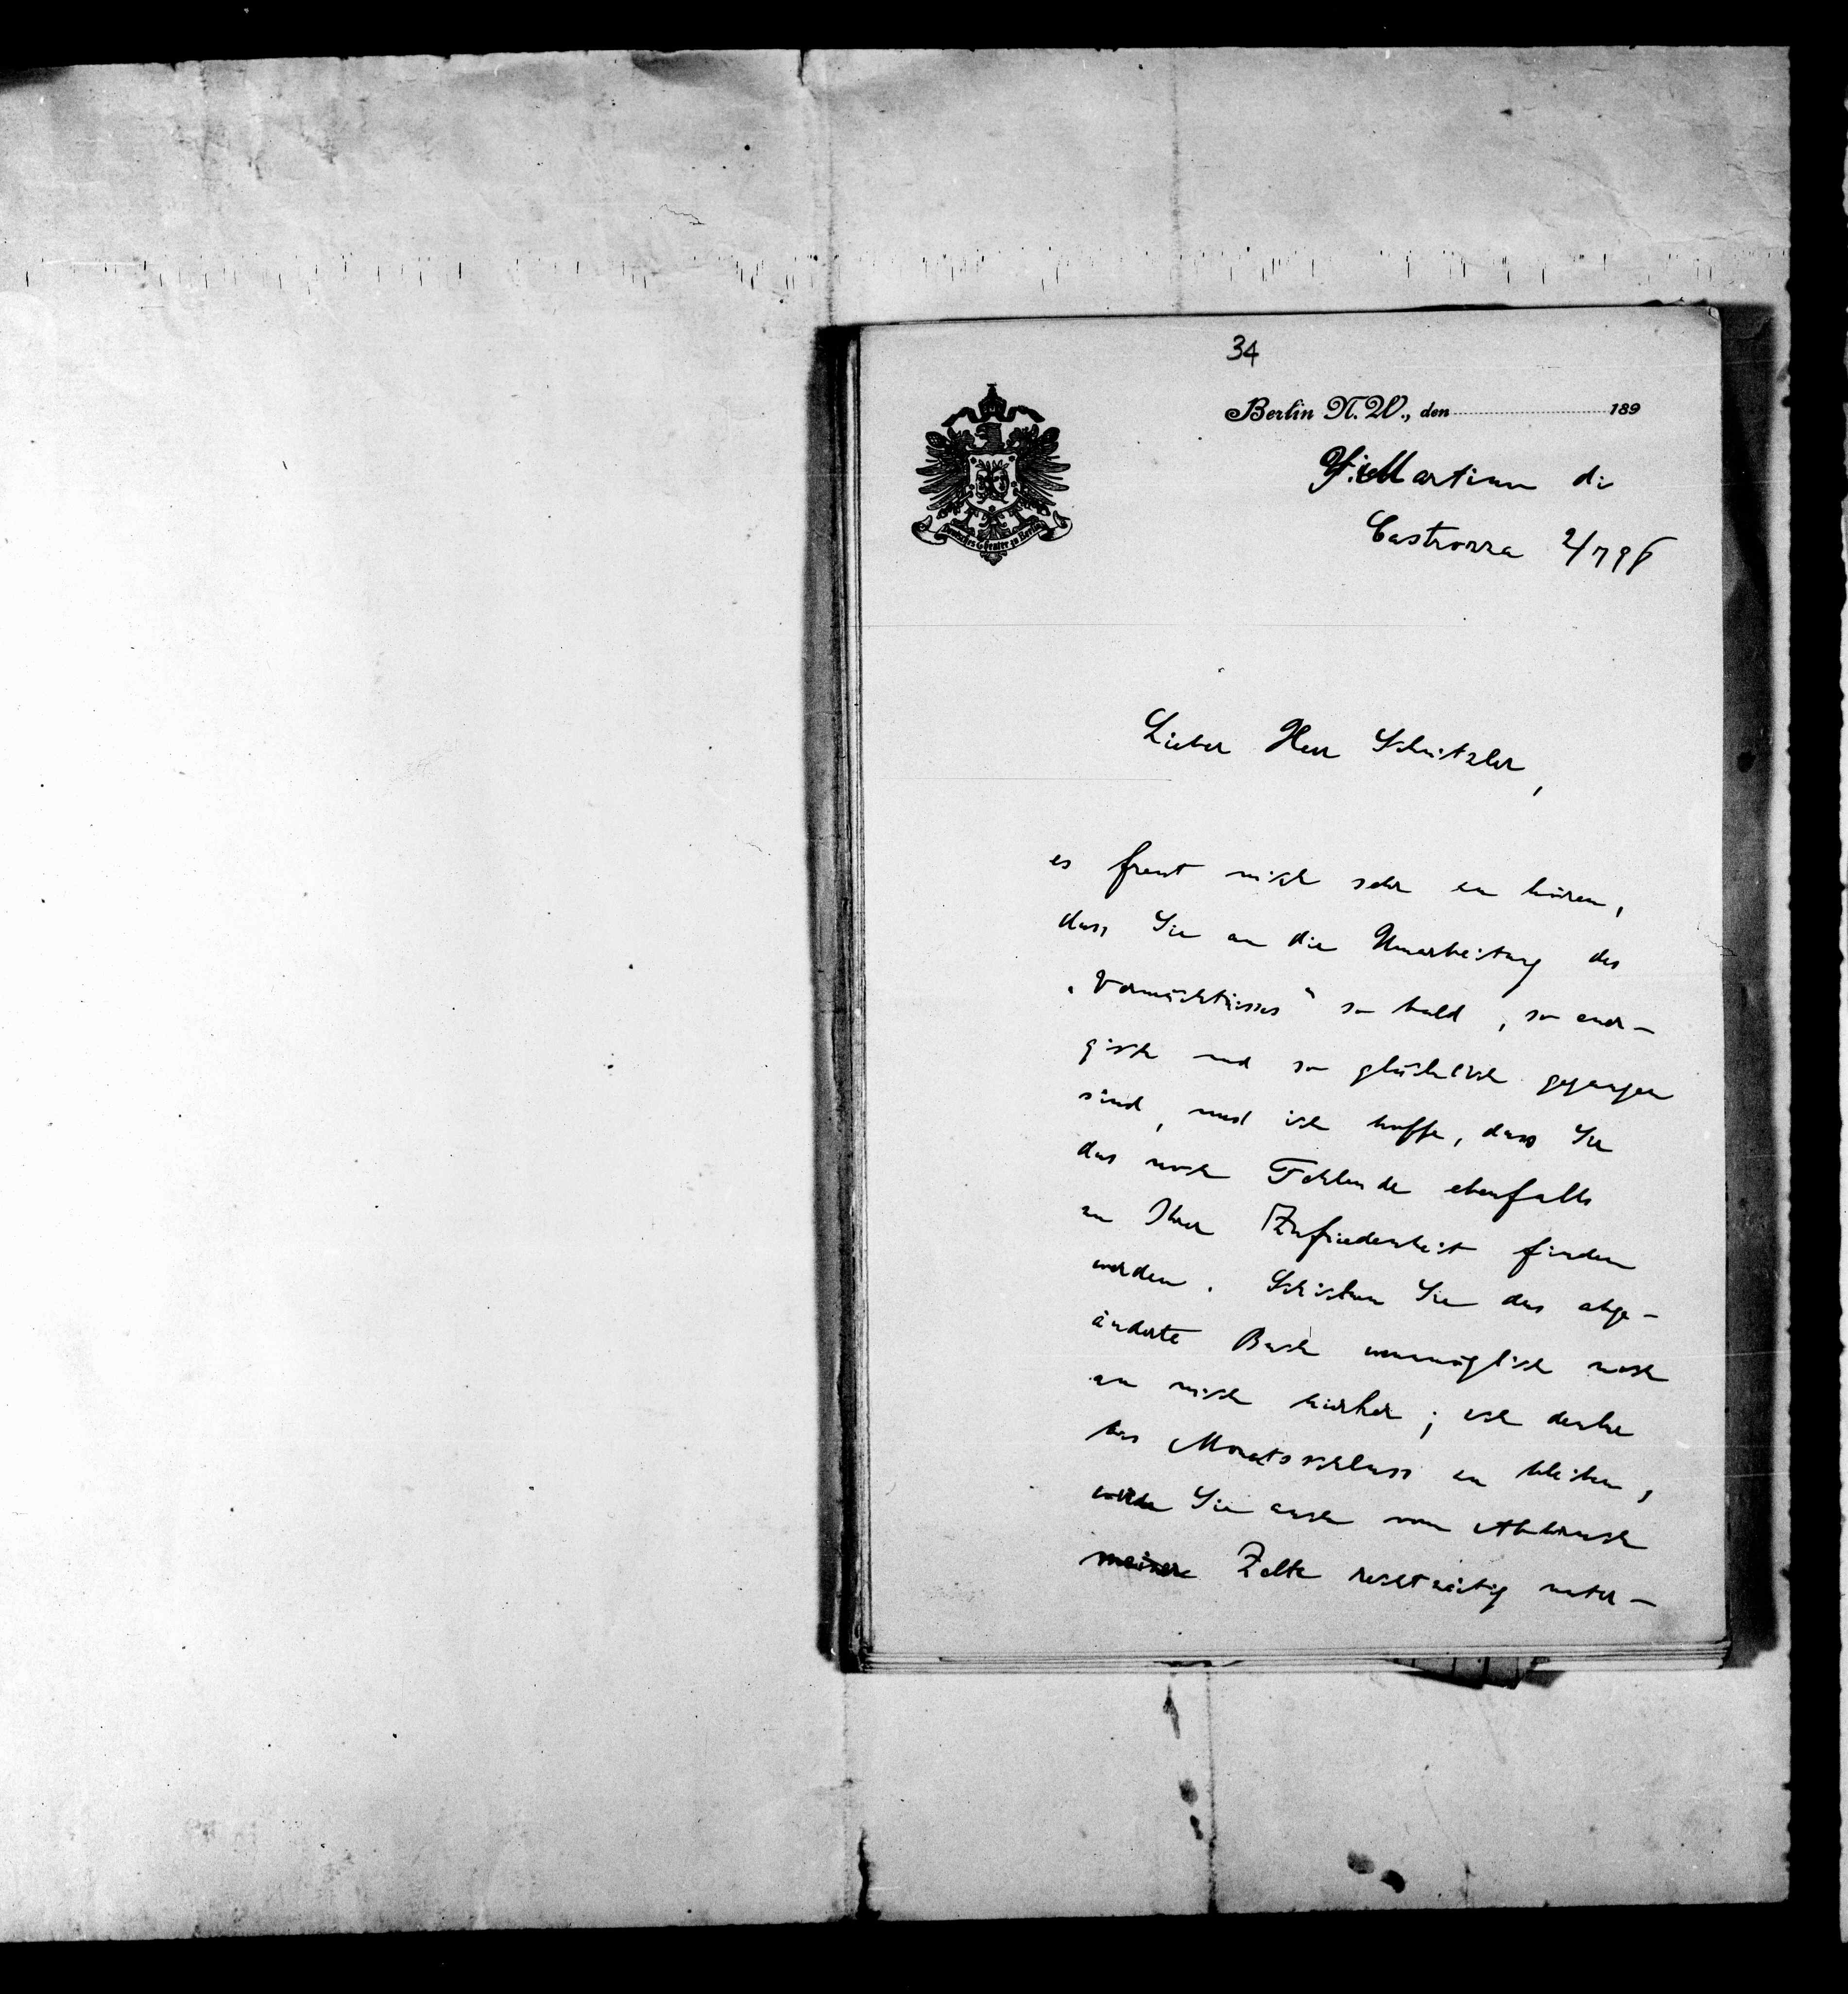 34
Berlin N. W., den 189
Deutsches Theater zu Berlin
S. Martino di
Castrozza 2/7 98
Lieber Herr Schnitzler,
es freut mich sehr zu hören,
dass Sie an die Umarbeitung des
„Vermächtnisses“ so bald, so ener-
gisch und so glücklich gegangen
sind, und ich hoffe, dass Sie
das noch Fehlende ebenfalls
zu Ihrer Zufriedenheit finden
werden. Schicken Sie das abge-
änderte Buch womöglich noch
an mich hierher; ich denke
bis Monatsschluss zu bleiben,
werde Sie auch vom Abbruch
meiner Zelte rechtzeitig unter-